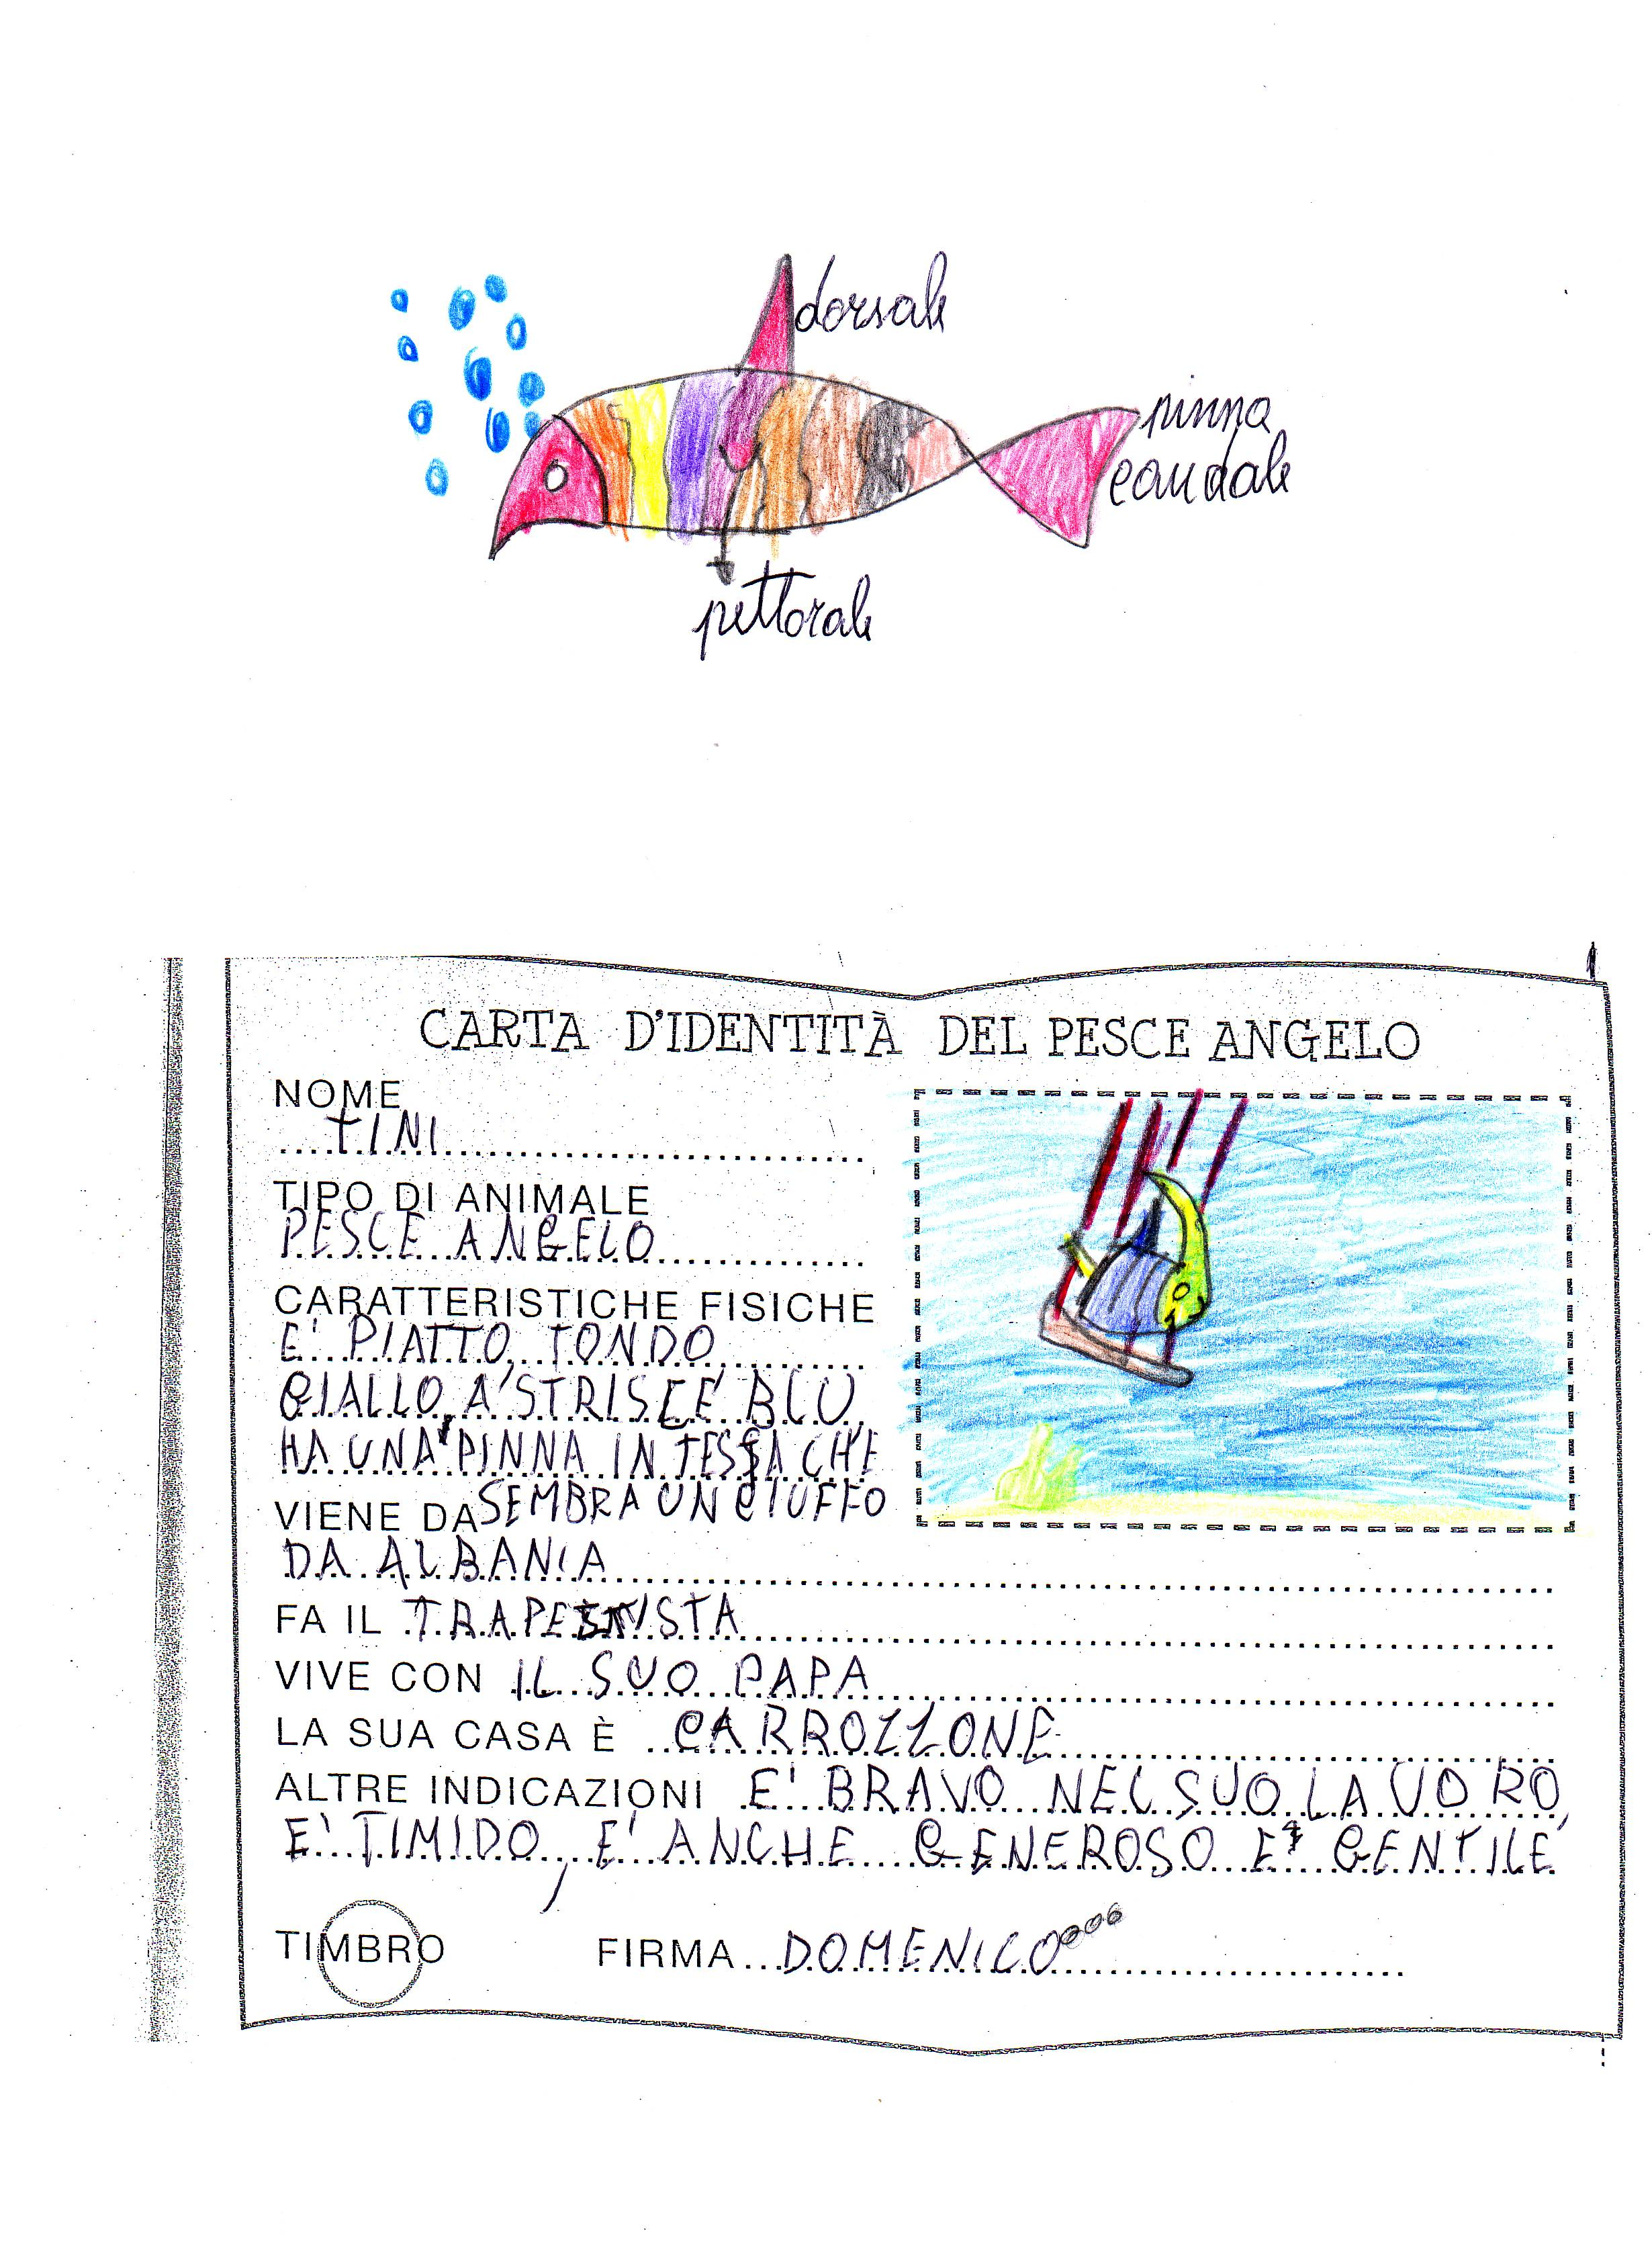 dorsale
pinna
caudale
pettorale
CARTA D'IDENTITÀ DEL PESCE ANGELO
NOME
TINI
TIPO DI ANIMALE
PESCE ANGELO
CARATTERISTICHE FISICHE
E' PIATTO, TONDO
GIALLO, A STRISCE BLU,
HA UNA PINNA IN TESTA CHE
SEMBRA UN CIUFFO
VIENE DA
DA ALBANIA
FA IL TRAPEZISTA
VIVE CON IL SUO PAPA
LA SUA CASA È CARROZZONE
ALTRE INDICAZIONI E' BRAVO NEL SUO LAVORO,
E' TIMIDO, E' ANCHE GENEROSO E GENTILE
TIMBRO FIRMA DOMENICO